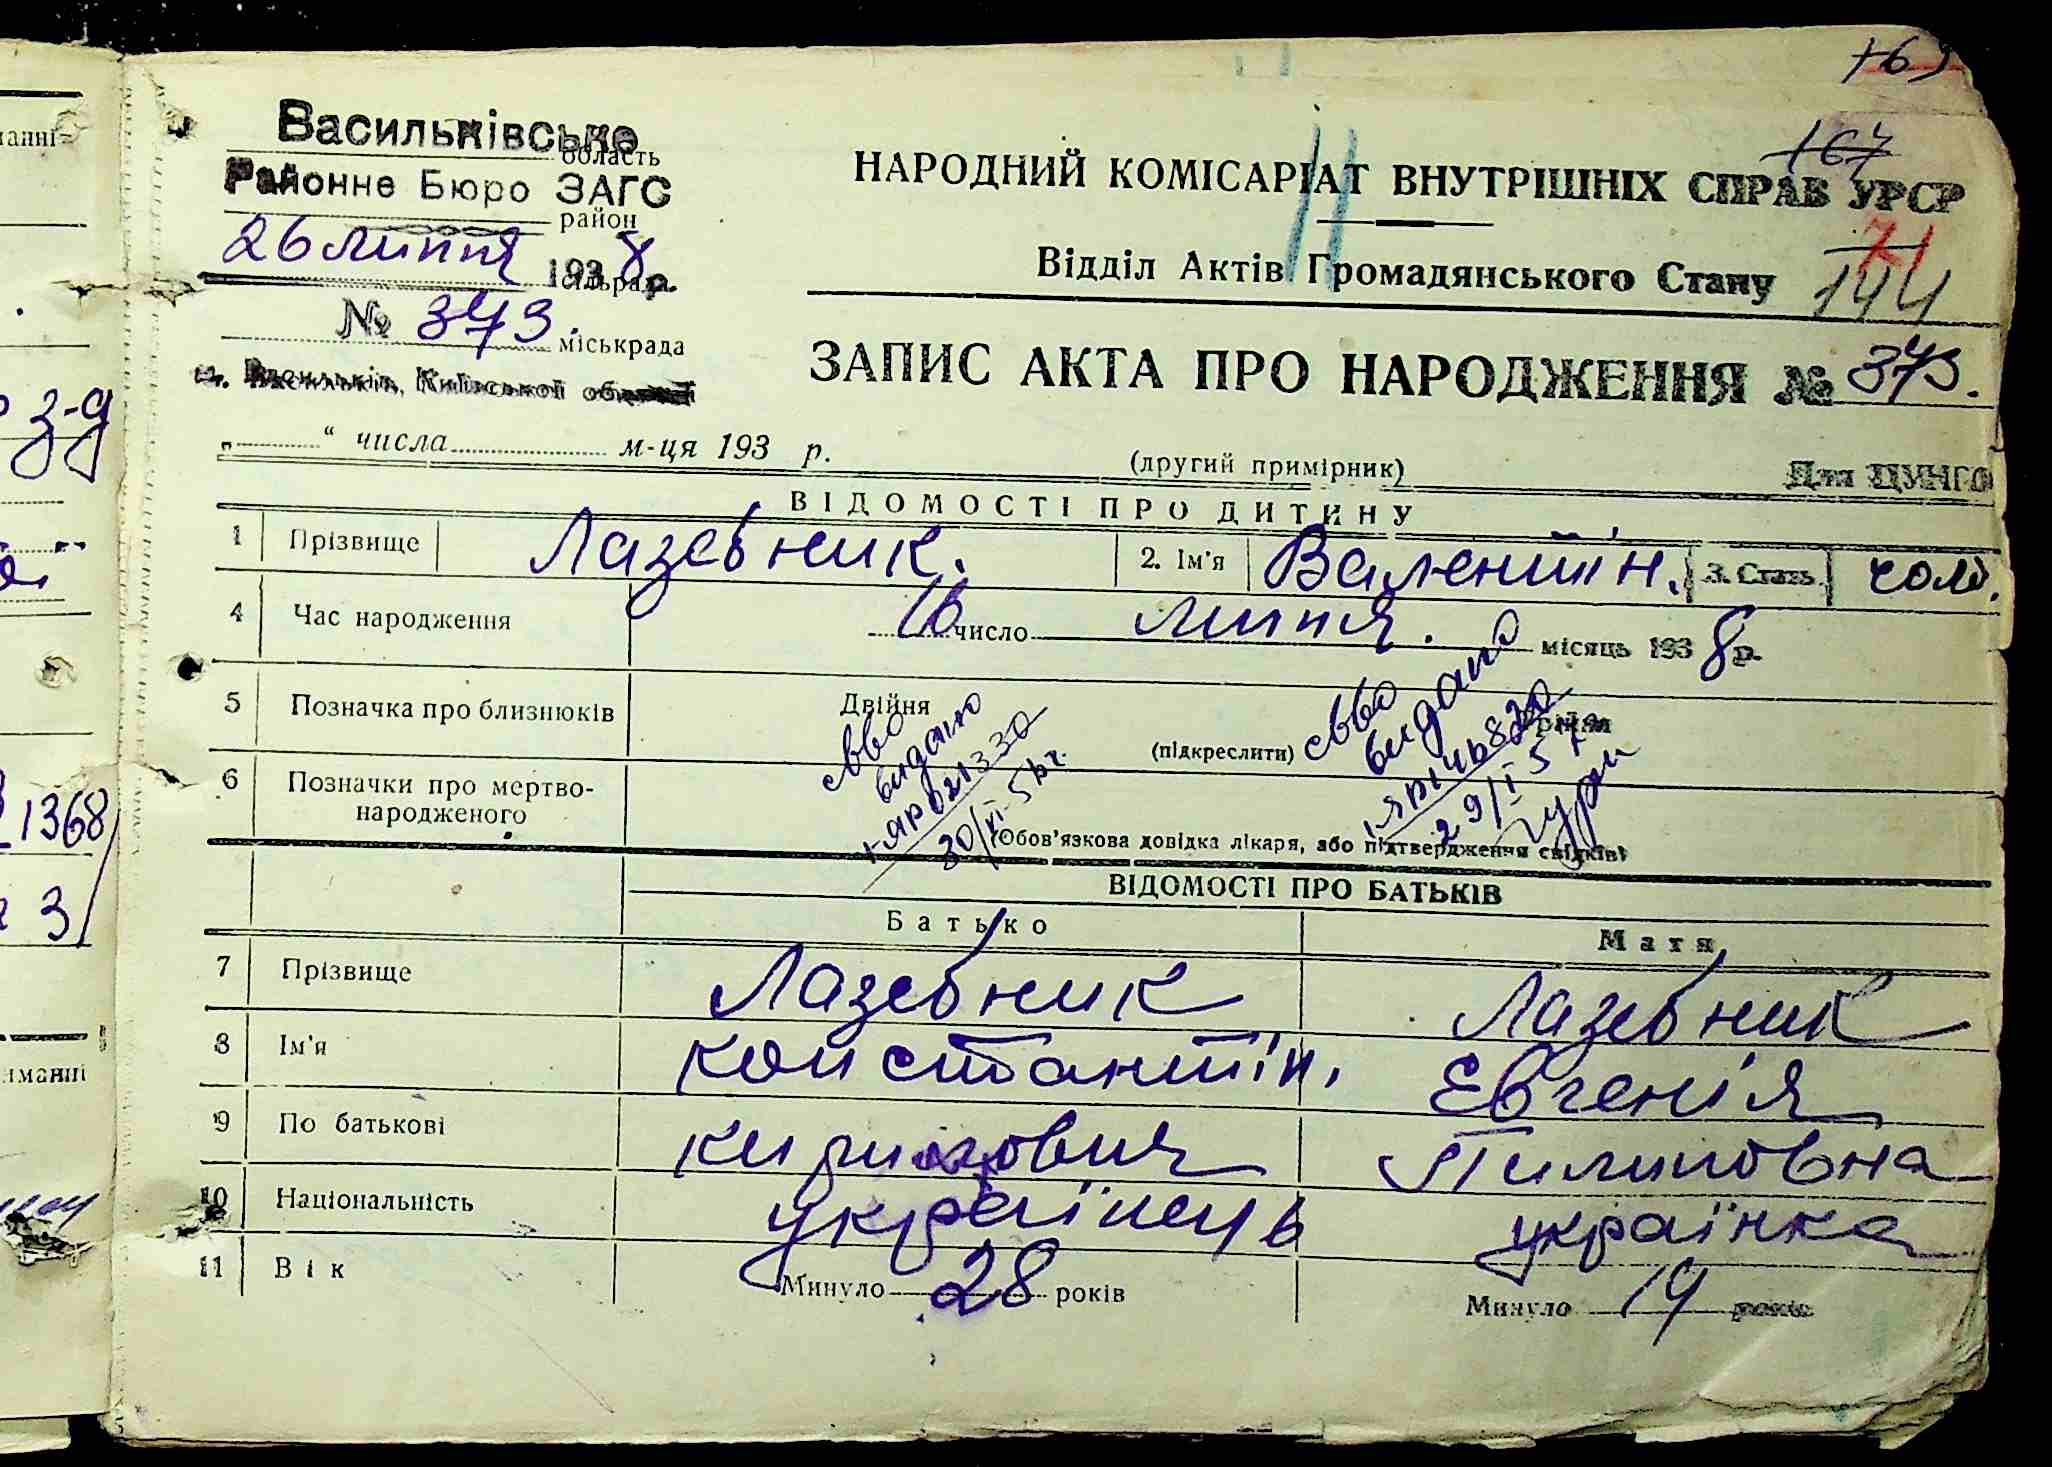 169
167
71
144
Васильківське
область
Районне Бюро ЗАГС
район
26 липня 1938 р.
сільрада
№ 373.
міськрада
м. Васильків, Київської області
НАРОДНИЙ КОМІСАРІАТ ВНУТРІШНІХ СПРАВ УРСР
Відділ Актів Громадянського Стану
ЗАПИС АКТА ПРО НАРОДЖЕННЯ № 373.
„ “ числа м-ця 193 р.
(другий примірник)
Для ЦУНГО
ВІДОМОСТІ ПРО ДИТИНУ
1 Прізвище Лазебник. 2. Ім'я Валентін. 3. Стать чол.
4 Час народження 16 число липня. місяць 1938 р.
5 Позначка про близнюків Двійня (підкреслити) Трійня
6 Позначки про мертво-
народженого
(Обов'язкова довідка лікаря, або підтвердження свідків)
свво
видано
30/VI-57г.
свво
видано
29/I 57
ВІДОМОСТІ ПРО БАТЬКІВ
Батько Мати
7 Прізвище Лазебник Лазебник
8 Ім'я Константін, Евгенія
9 По батькові Кирилович Пилиповна
10 Національність українець українка
11 Вік Минуло 28 років Минуло 19 років
анні-
з-д
1368
3/
иманні